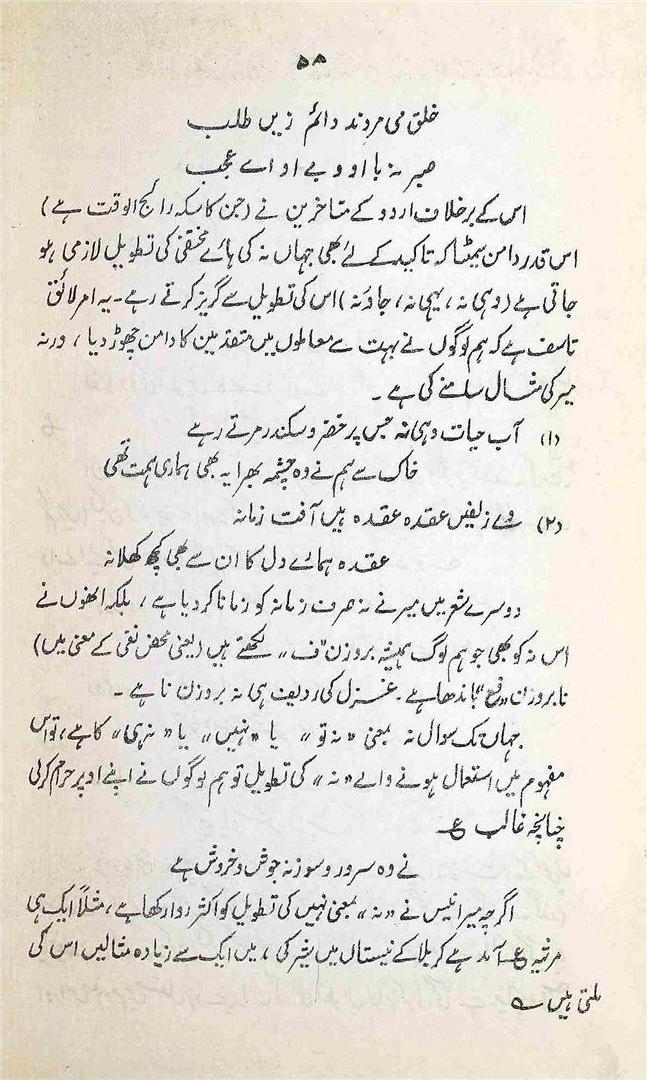 ۵۸
خلق می مردند دائم زیں طلب
صبر نہ با او و بے او اے عجب
اس کے برخلاف اردو کے متاخرین نے (جن کا سکہ رائج الوقت ہے)
اس قدر دامن سمیٹا کہ تاکید کے لئے بھی جہاں نہ کی ہائے مختفی کی تطویل لازمی ہو
جاتی ہے (وہی نہ، یہی نہ، جاؤ نہ) اس کی تطویل سے گریز کرتے رہے۔ یہ امر لائق
تاسف ہے کہ ہم لوگوں نے بہت سے معاملوں میں متقدمین کا دامن چھوڑ دیا، ورنہ
میر کی مثال سامنے کی ہے۔
(۱) آب حیات وہی نہ جس پر خضر و سکندر مرتے رہے
خاک سے ہم نے وہ چشمہ بھرا یہ بھی ہماری ہمت تھی
(۲) وے زلفیں عقدہ عقدہ ہیں آفت زمانہ
عقدہ ہمارے دل کا ان سے بھی کچھ کھلا نہ
دوسرے شعر میں میر نے نہ صرف زمانہ کو زمانا کر دیا ہے، بلکہ انھوں نے
اس نہ کو بھی جو ہم لوگ ہمیشہ بروزن "ف" لکھتے ہیں (یعنی محض نفی کے معنی میں)
نا بروزن "فع" باندھا ہے۔ غزل کی ردیف ہی نہ بروزن نا ہے۔
جہاں تک سوال نہ بمعنی "نہ تو" یا "نہیں" یا "نہ ہی" کا ہے، تو اس
مفہوم میں استعمال ہونے والے "نہ" کی تطویل تو ہم لوگوں نے اپنے اوپر حرام کر لی
چنانچہ غالب ؏
نے وہ سرور و سوز نہ جوش و خروش ہے
اگرچہ میر انیس نے "نہ" بمعنی نہیں کی تطویل کو اکثر روا رکھا ہے، مثلاً ایک ہی
مرثیہ ؏ آمد ہے کربلا کے نیستاں میں شیر کی، میں ایک سے زیادہ مثالیں اس کی
ملتی ہیں ؎